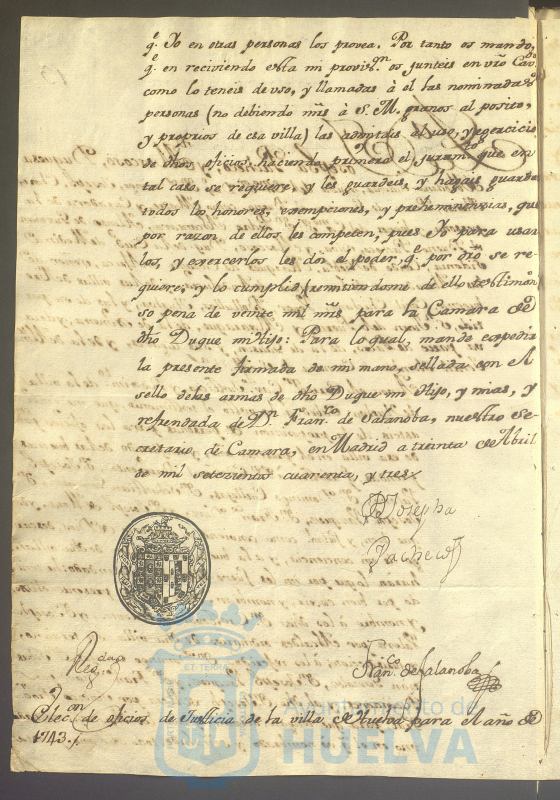 q.e Yo en otras personas los provea. Por tanto os mando,
q.e en reciviendo esta mi provis.on os junteis en vro Cav.do
como lo teneis de uso, y llamadas à el las nominadas
personas (no debiendo mrs à S. M. granos al posito,
y proprios de esa villa) las admitais al uso, y egercicio
de dhos oficios, haciendo primero el juram.to que en
tal caso se requiere, y les guardeis, y hagais guardar
todos los honores, exempciones, y preheminencias, que
por razon de ellos les competen, pues Yo para usar
los, y exercerlos les doi el poder q.e por dro se re
quiere, y lo cumplid, remitiendome de ello testimon.o
so pena de veinte mil mrs para la Camara de
dho Duque mi Hijo: Para lo qual, mande expedir
la presente firmada de mi mano, sellada con el
sello de las armas de dho Duque mi Hijo, y mias, y
refrendada de D.n Fran.co de Salanoba, nuestro Se
cretario de Camara, en Madrid a treinta de Abril
de mil setezientos cuarenta, y tres
Josepha
Pacheco
Reg.da
Fran.co de Salanoba
Elec.on de oficios de Justicia de la villa de Huelva para el año de
1743.
ET TERRÆ
Ayuntamiento de
HUELVA